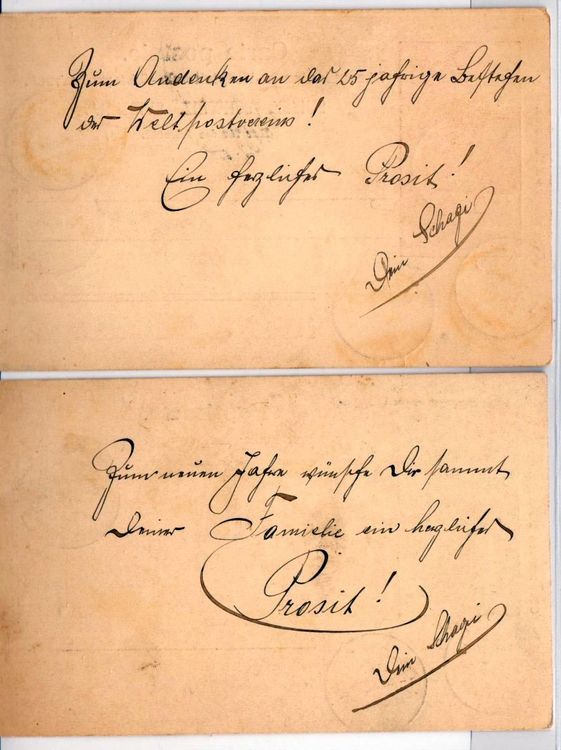 Zum Andenken an das 25 jährige Bestehen
des Weltpostvereins!
Ein herzliches Prosit!
Dein Schagi
Zum neuen Jahre wünsche Dir sammt
Deiner Familie ein herzliches
Prosit!
Dein Schagi